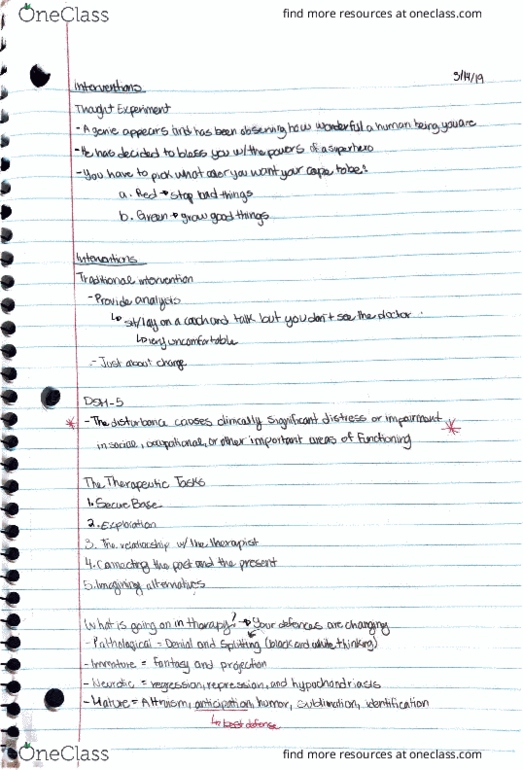 OneClass
find more resources at oneclass.com
3/14/19
Interventions
Thought Experiment
- A genie appears and has been observing how wonderful a human being you are
- He has decided to bless you w/ the powers of a superhero
- You have to pick what color you want your cape to be:
a. Red → stop bad things
b. Green → grow good things
Interventions
Traditional intervention
- Provide analysis
↳ sit/lay on a coach and talk but you don't see the doctor
↳ very uncomfortable
- Just about change
DSM-5
* - The disturbance causes clinically significant distress or impairment *
in social, occupational, or other important areas of functioning
The Therapeutic Tasks
1. Secure Base
2. Exploration
3. The relationship w/ the therapist
4. Connecting the past and the present
5. Imagining alternatives
What is going on in therapy? → Your defences are changing
- Pathological = Denial and splitting (black and white thinking)
- Immature = Fantasy and projection
- Neurotic = regression, repression, and hypochondriasis
- Mature = Altruism, anticipation, humor, sublimation, identification
↳ best defense
OneClass
find more resources at oneclass.com